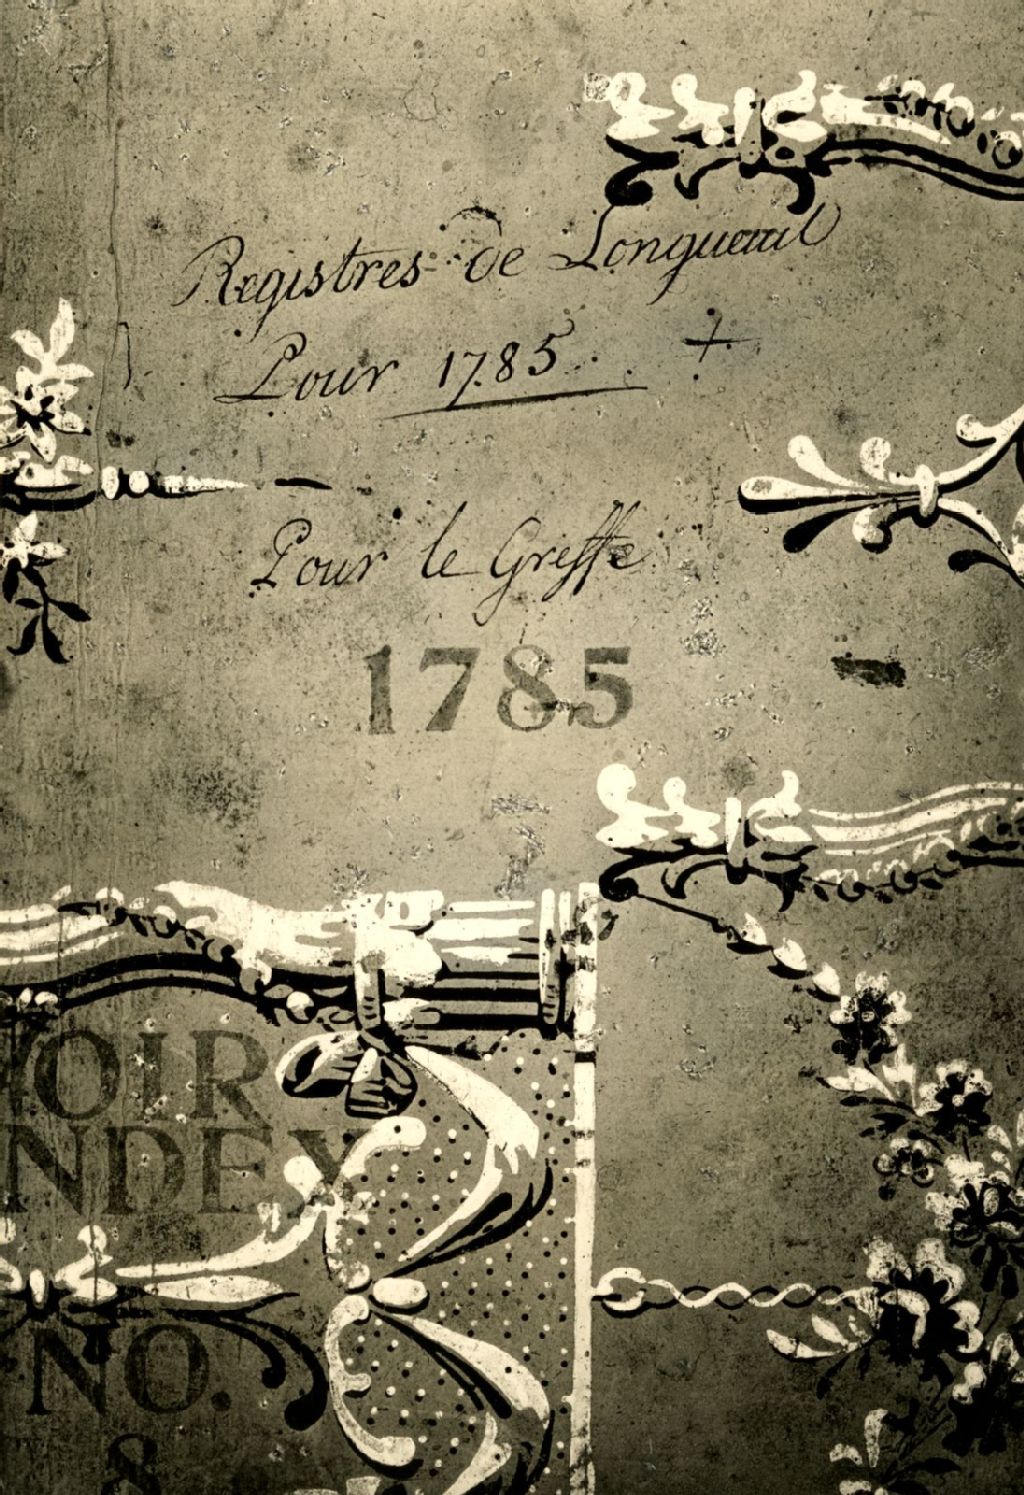 Registres de Longueuil
Pour 1785.
Pour le Greffe
1785
OIR
INDEX
NO.
8